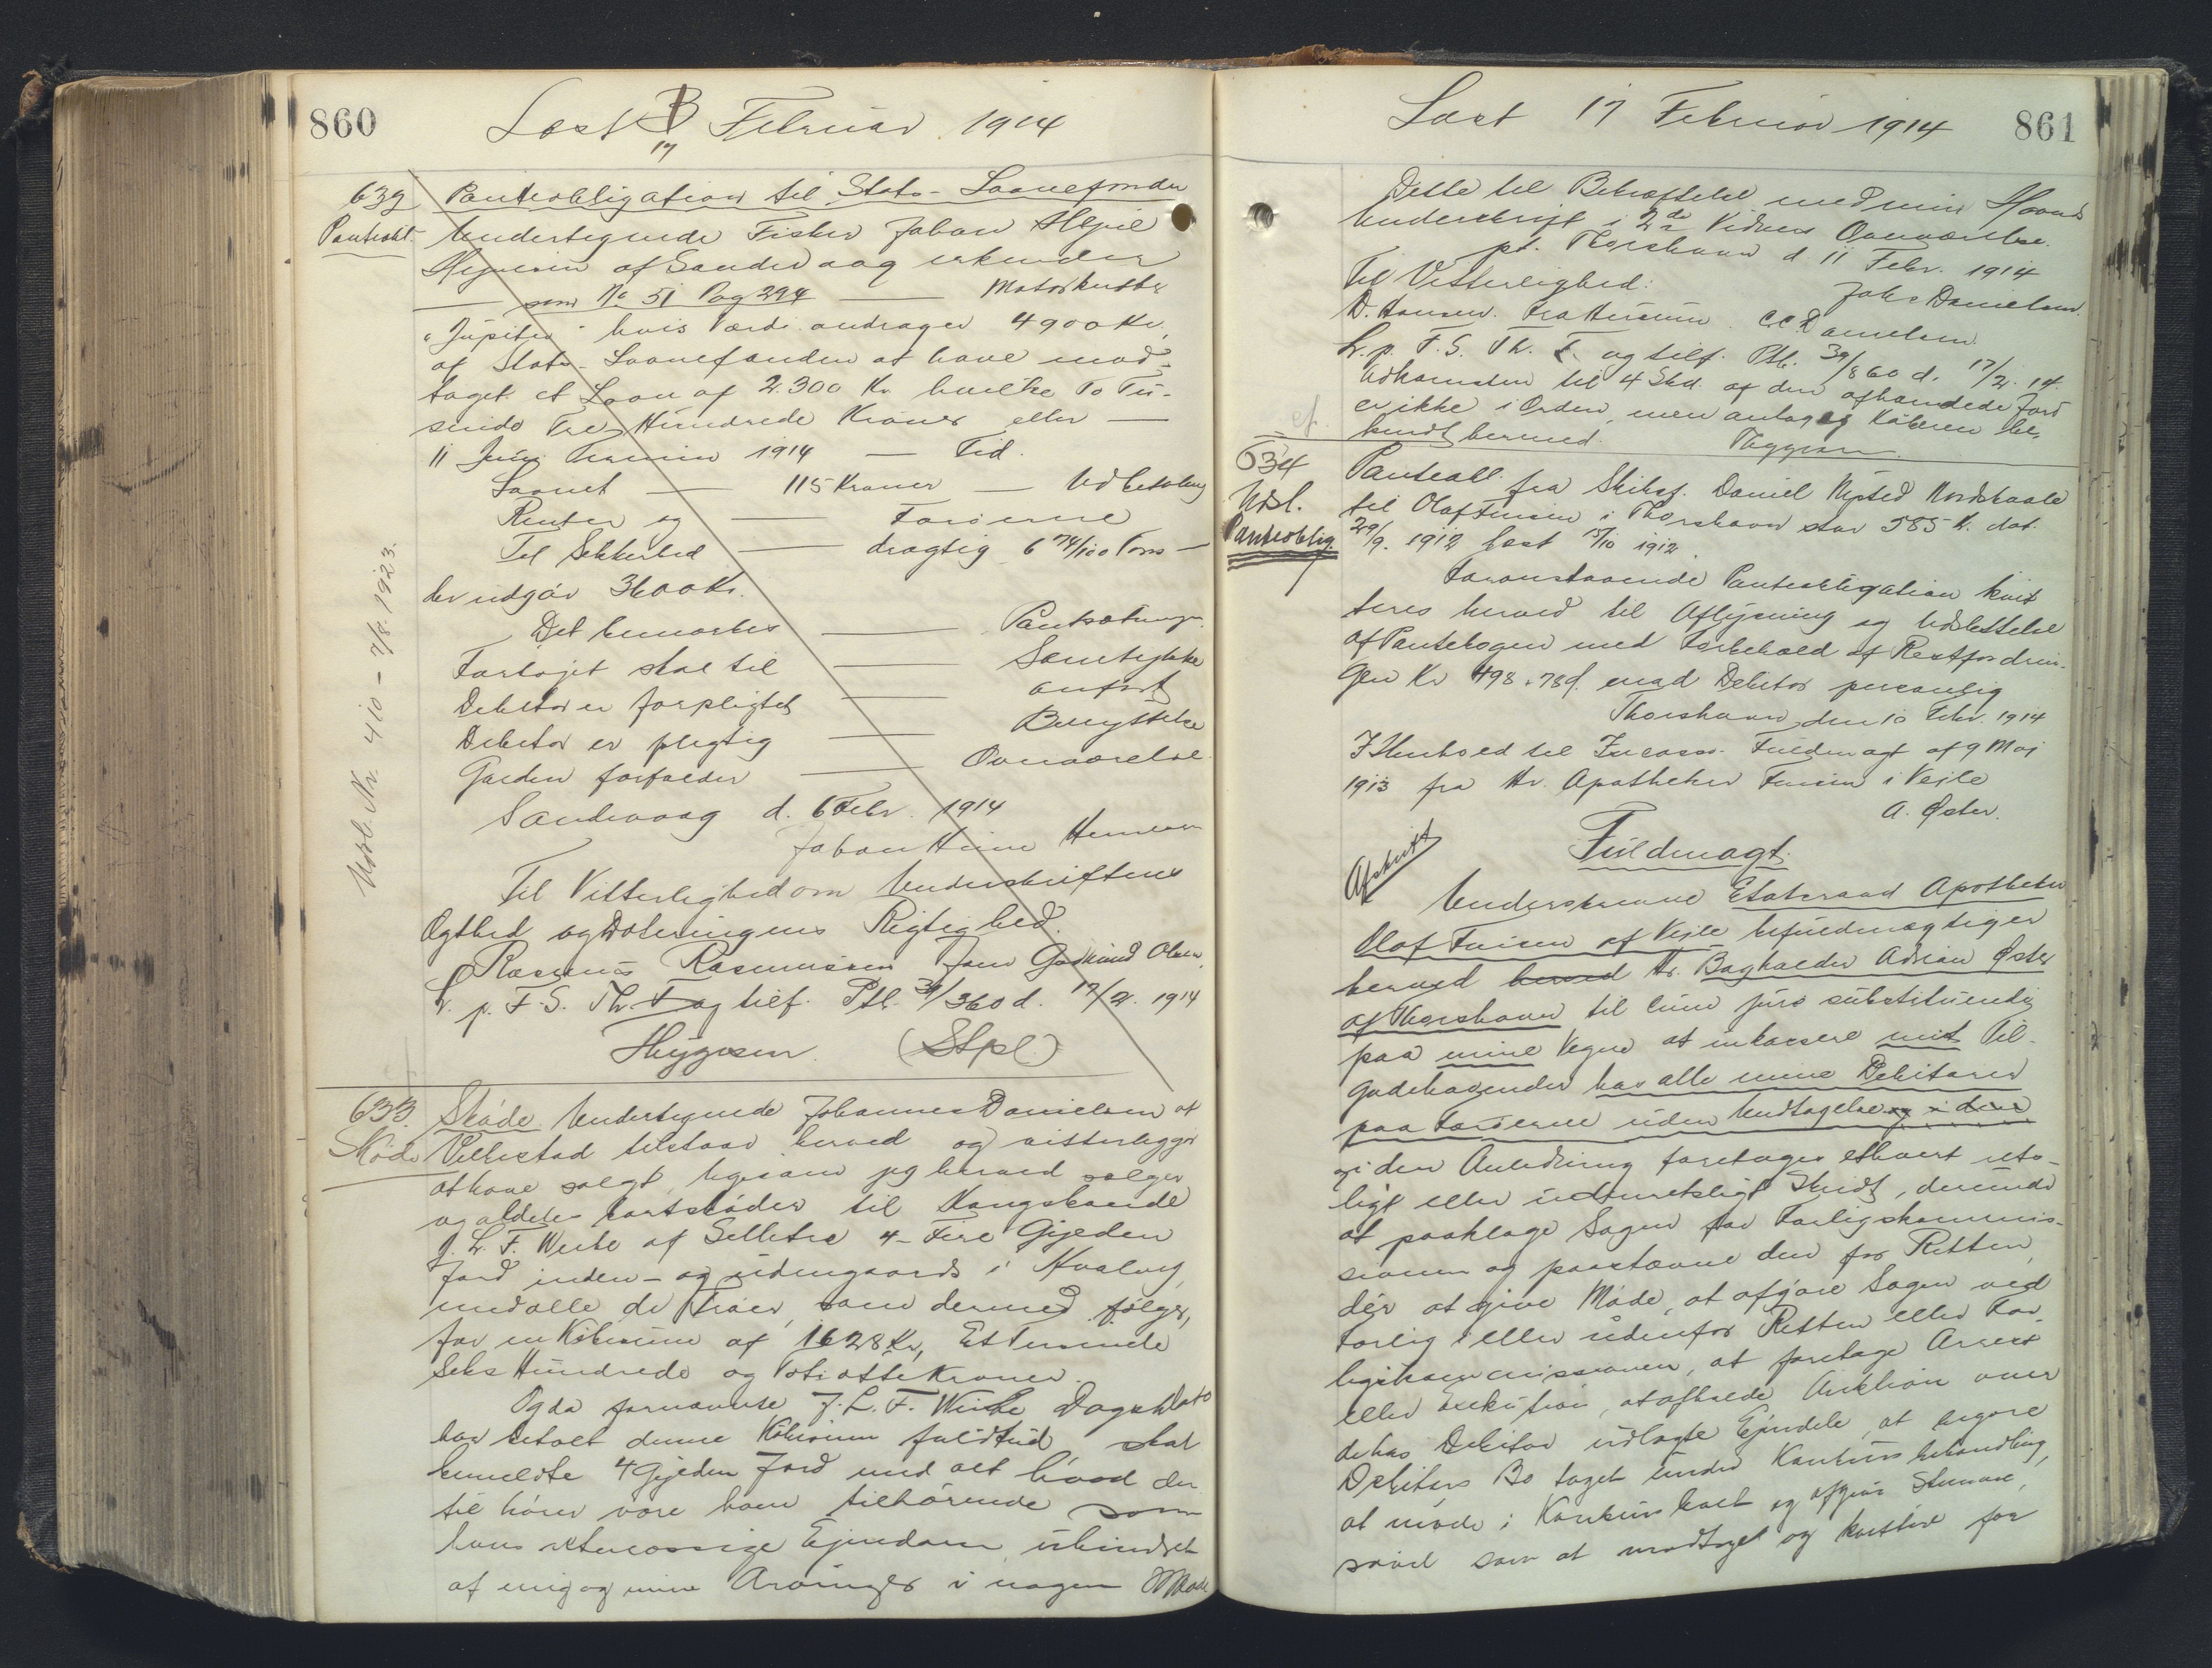 860
Læst 17 Februar 1914
632 Panteobligation til Stats-Laanefonden
Panteobl. Undertegnede Fisker Johan
af Sandevaag erkender
— som No 51 Pag 294 — Motorkutter
"Jupiter" hvis Værdi andrager 4900 Kr.
af Stats-Laanefonden at have mod-
taget et Laan af 2.300 Kr. hvilke To Tu-
sinde Tre Hundrede Kroner eller —
11 Juni Termin 1914 — Tid.
Laanet — 115 Kroner — Udbetaling
Renter og — Færøerne
Til Sikkerhed — drægtig 6 74/100 Tons —
der udgør 3600 Kr.
Det bemærkes — Pantsætning
Fartøjet skal til — Samtykke
Debitor er forpligtet — anført
Debitor er pligtig — Benyttelse
Gælden forfalder — Overværelse.
Sandevaag d. 6 Febr. 1914
Johan
Til Vitterlighed om Underskriftens
Ægthed og Dateringens Rigtighed.
Rasmus Rasmussen Olsen
L. p. F. S. Th. T og tilf. Ptl. 39/860 d. 17/2. 1914
(Stpl.)
Udsl. Nr. 410 - 7/8. 1923.
633. Skøde. Undertegnede Johannes Danielsen af
Skøde Velbestad tilstaar herved og vitterliggør
at have solgt, ligesom jeg herved sælger
og aldeles bortskøder til Kongsbonde
J. L. F. Weihe af Selletræ 4 - Fire Gyeden
Jord inden- og udengaards i Hvalvig,
med alle de Træer, som dermed følger,
for en Købesum af 1628 Kr, Et Tusinde
Seks Hundrede og Toti otte Kroner.
Og da fornævnte J. L. F. Weihe Dags Dato
har betalt denne Købesum fuldtud skal
bemeldte 4 Gyeden Jord med alt hvad der
til hører være ham tilhørende som
hans retmæssige Ejendom, uhindret
af mig og mine Arvinger i nogen Maade
861
Læst 17 Februar 1914
Dette til Bekræftelse med min Haands
Underskrift i 2de Vidners Overværelse.
pt. Thorshavn d 11 Febr. 1914
Til Vitterlighed: Johs Danielsen.
D. Hansen. C.C. Danielsen
L. p. F. S. Th. T. og tilf. Ptl. 39/860 d. 17/2. 14.
Adkomsten til 4 Skd. af den afhændede Jord
er ikke i Orden, men antagelig Køberen be-
kendt hermed.
634 Panteobl. fra Skibsf. Daniel Nysted Nordskaale
Udsl. til Olaf Finsen i Thorshavn stor 585 Kr. dat.
Panteoblig. 29/9. 1912 læst 15/10 1912.
Foranstaaende Panteobligation kvit-
teres herved til Aflysning og Udslettelse
af Pantebogen med Forbehold af Restfordrin-
gen Kr 498.78 Ø. mod Debitor personlig
Thorshavn, den 10 Febr. 1914
I Henhold til Incasso-Fuldmagt af 9 Maj
1913 fra Hr. Apotheker Finsen i Vejle
A. Øster.
Afskrift Fuldmagt.
Underskrevne Etatsraad Apotheker
Olaf Finsen af Vejle befuldmægtiger
herved herved Hr. Bogholder Adrian Øster
af Thorshavn til cum jure substituendi
paa mine Vegne at inkassere mit Til-
godehavender hos alle mine Debitorer
paa Færøerne uden Undtagelse og i den
og i den Anledning foretages ethvert rets-
ligt eller udenretsligt Skridt, derunder
at paaklage Sagen for Forligskommis-
sionen og paastævne den for Retten,
dér at give Møde, at afgøre Sagen ved
Forlig i eller udenfor Retten eller For-
ligskommissionen, at foretage Arrest
eller Exekution, at afholde Auktion over
de hos Debitor udlagte Ejendele, at begære
Debitors Bo taget under Konkursbehandling,
at møde i Konkursboet og afgive Stemme,
såvel som at modtaget og kvittere for